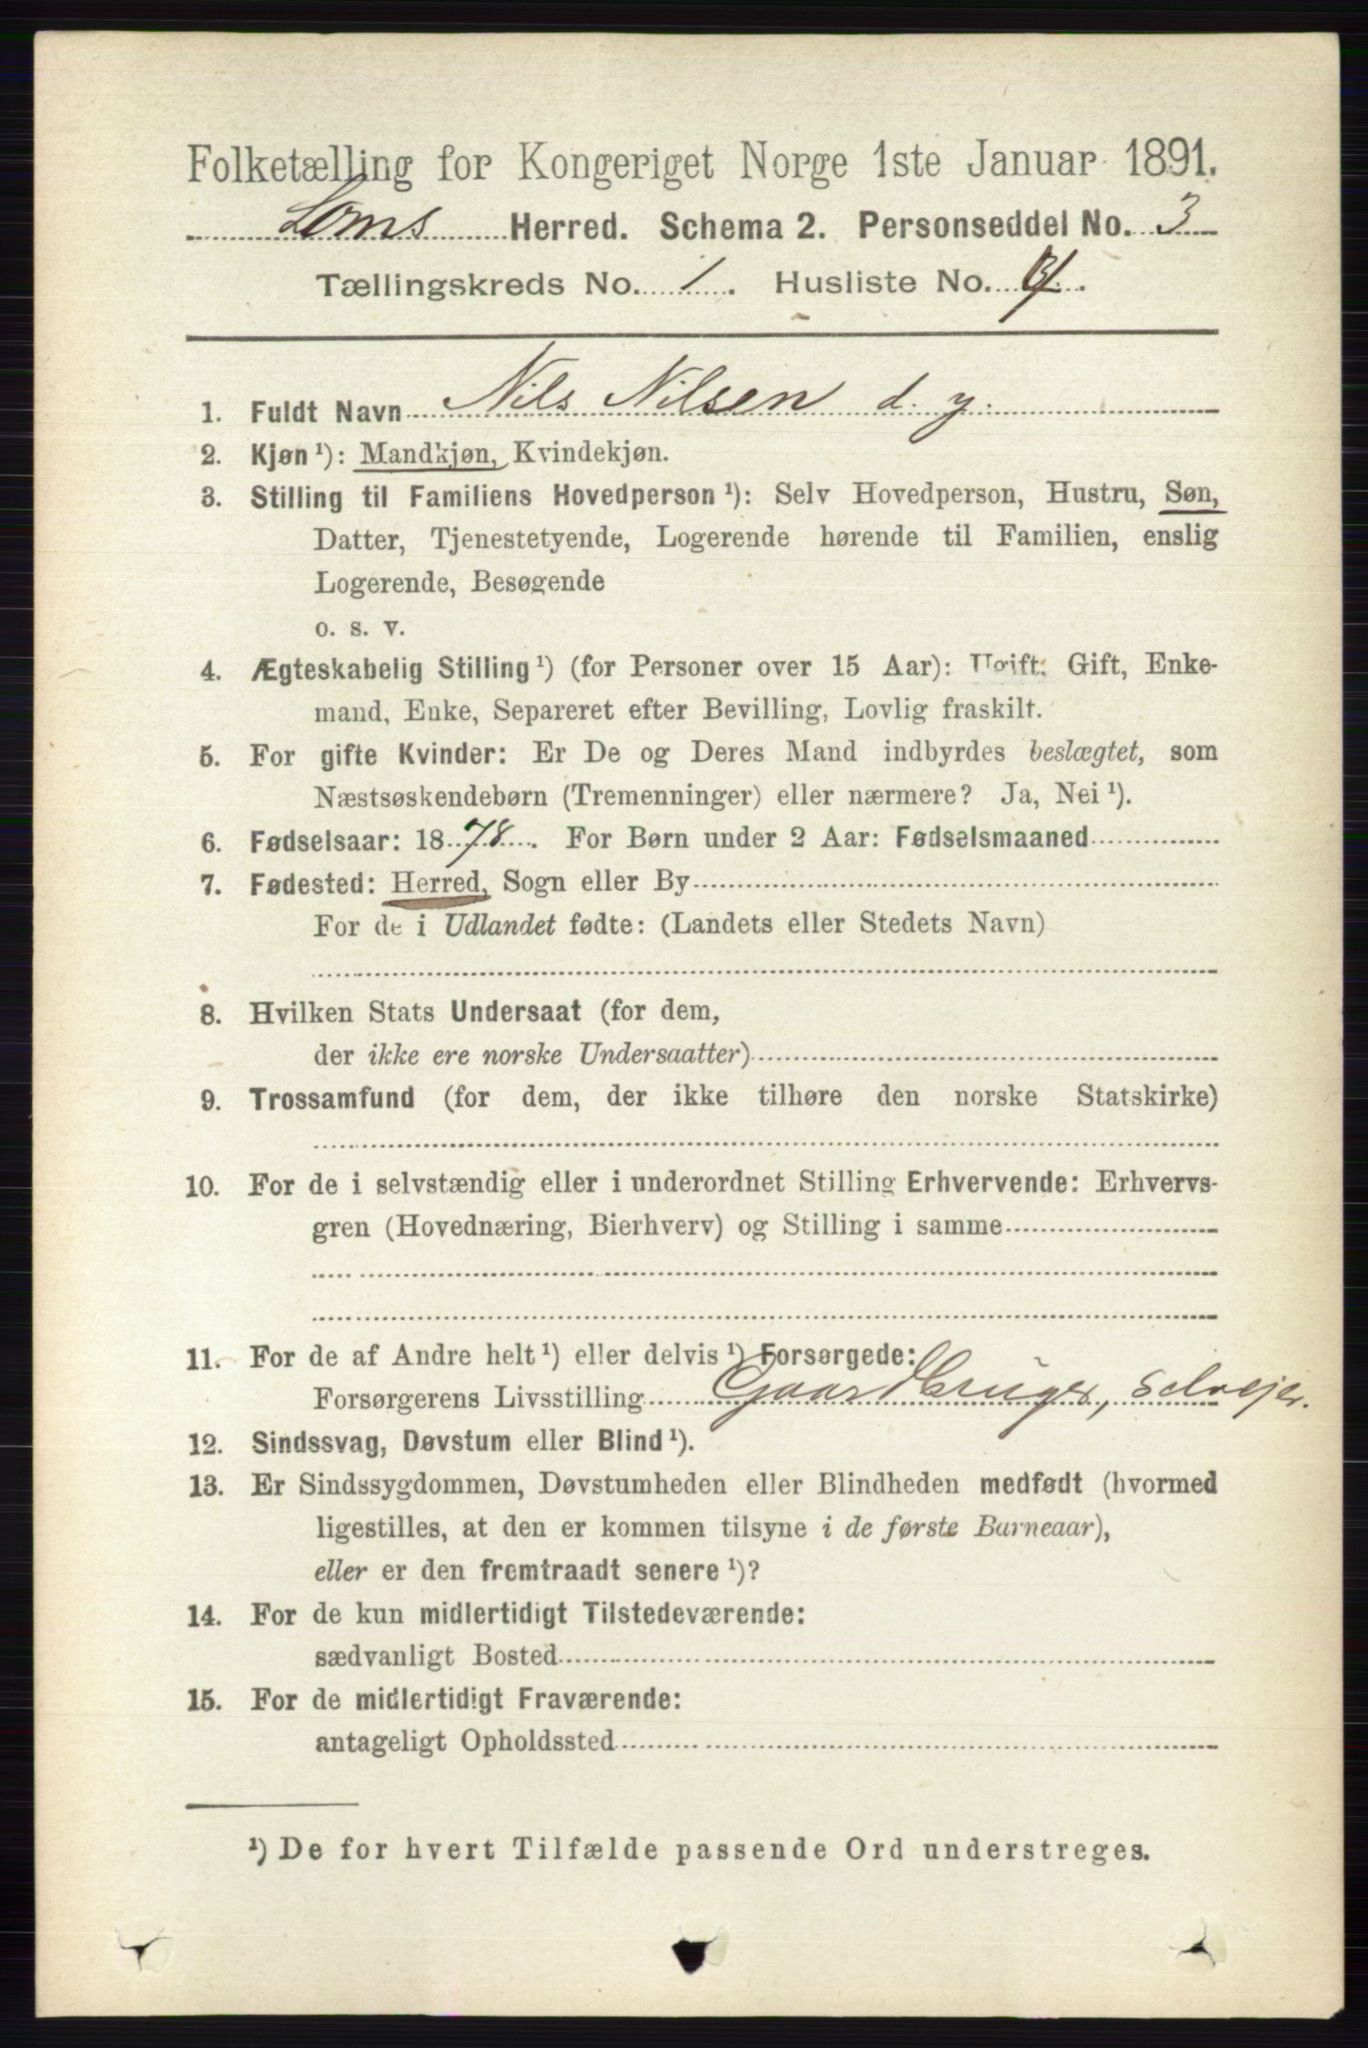 Folketælling for Kongeriget Norge 1ste Januar 1891.
Loms Herred. Schema 2. Personseddel No. 3
Tællingskreds No. 1. Husliste No.
1. Fuldt Navn Nils Nilsen d. y.
2. Kjøn ¹): Mandkjøn, Kvindekjøn.
3. Stilling til Familiens Hovedperson ¹): Selv Hovedperson, Hustru, Søn,
Datter, Tjenestetyende, Logerende hørende til Familien, enslig
Logerende, Besøgende
o. s. v.
4. Ægteskabelig Stilling ¹) (for Personer over 15 Aar): Ugift, Gift, Enke-
mand, Enke, Separeret efter Bevilling, Lovlig fraskilt.
5. For gifte Kvinder: Er De og Deres Mand indbyrdes beslægtet, som
Næstsøskendebørn (Tremenninger) eller nærmere? Ja, Nei ¹).
6. Fødselsaar: 1878. For Børn under 2 Aar: Fødselsmaaned
7. Fødested: Herred, Sogn eller By
For de i Udlandet fødte: (Landets eller Stedets Navn)
8. Hvilken Stats Undersaat (for dem,
der ikke ere norske Undersaatter)
9. Trossamfund (for dem, der ikke tilhøre den norske Statskirke)
10. For de i selvstændig eller i underordnet Stilling Erhvervende: Erhvervs-
gren (Hovednæring, Bierhverv) og Stilling i samme
11. For de af Andre helt ¹) eller delvis ¹) Forsørgede:
Forsørgerens Livsstilling Gaardbruger, selvejer.
12. Sindssvag, Døvstum eller Blind ¹).
13. Er Sindssygdommen, Døvstumheden eller Blindheden medfødt (hvormed
ligestilles, at den er kommen tilsyne i de første Barneaar),
eller er den fremtraadt senere ¹)?
14. For de kun midlertidigt Tilstedeværende:
sædvanligt Bosted
15. For de midlertidigt Fraværende:
antageligt Opholdssted
¹) De for hvert Tilfælde passende Ord understreges.